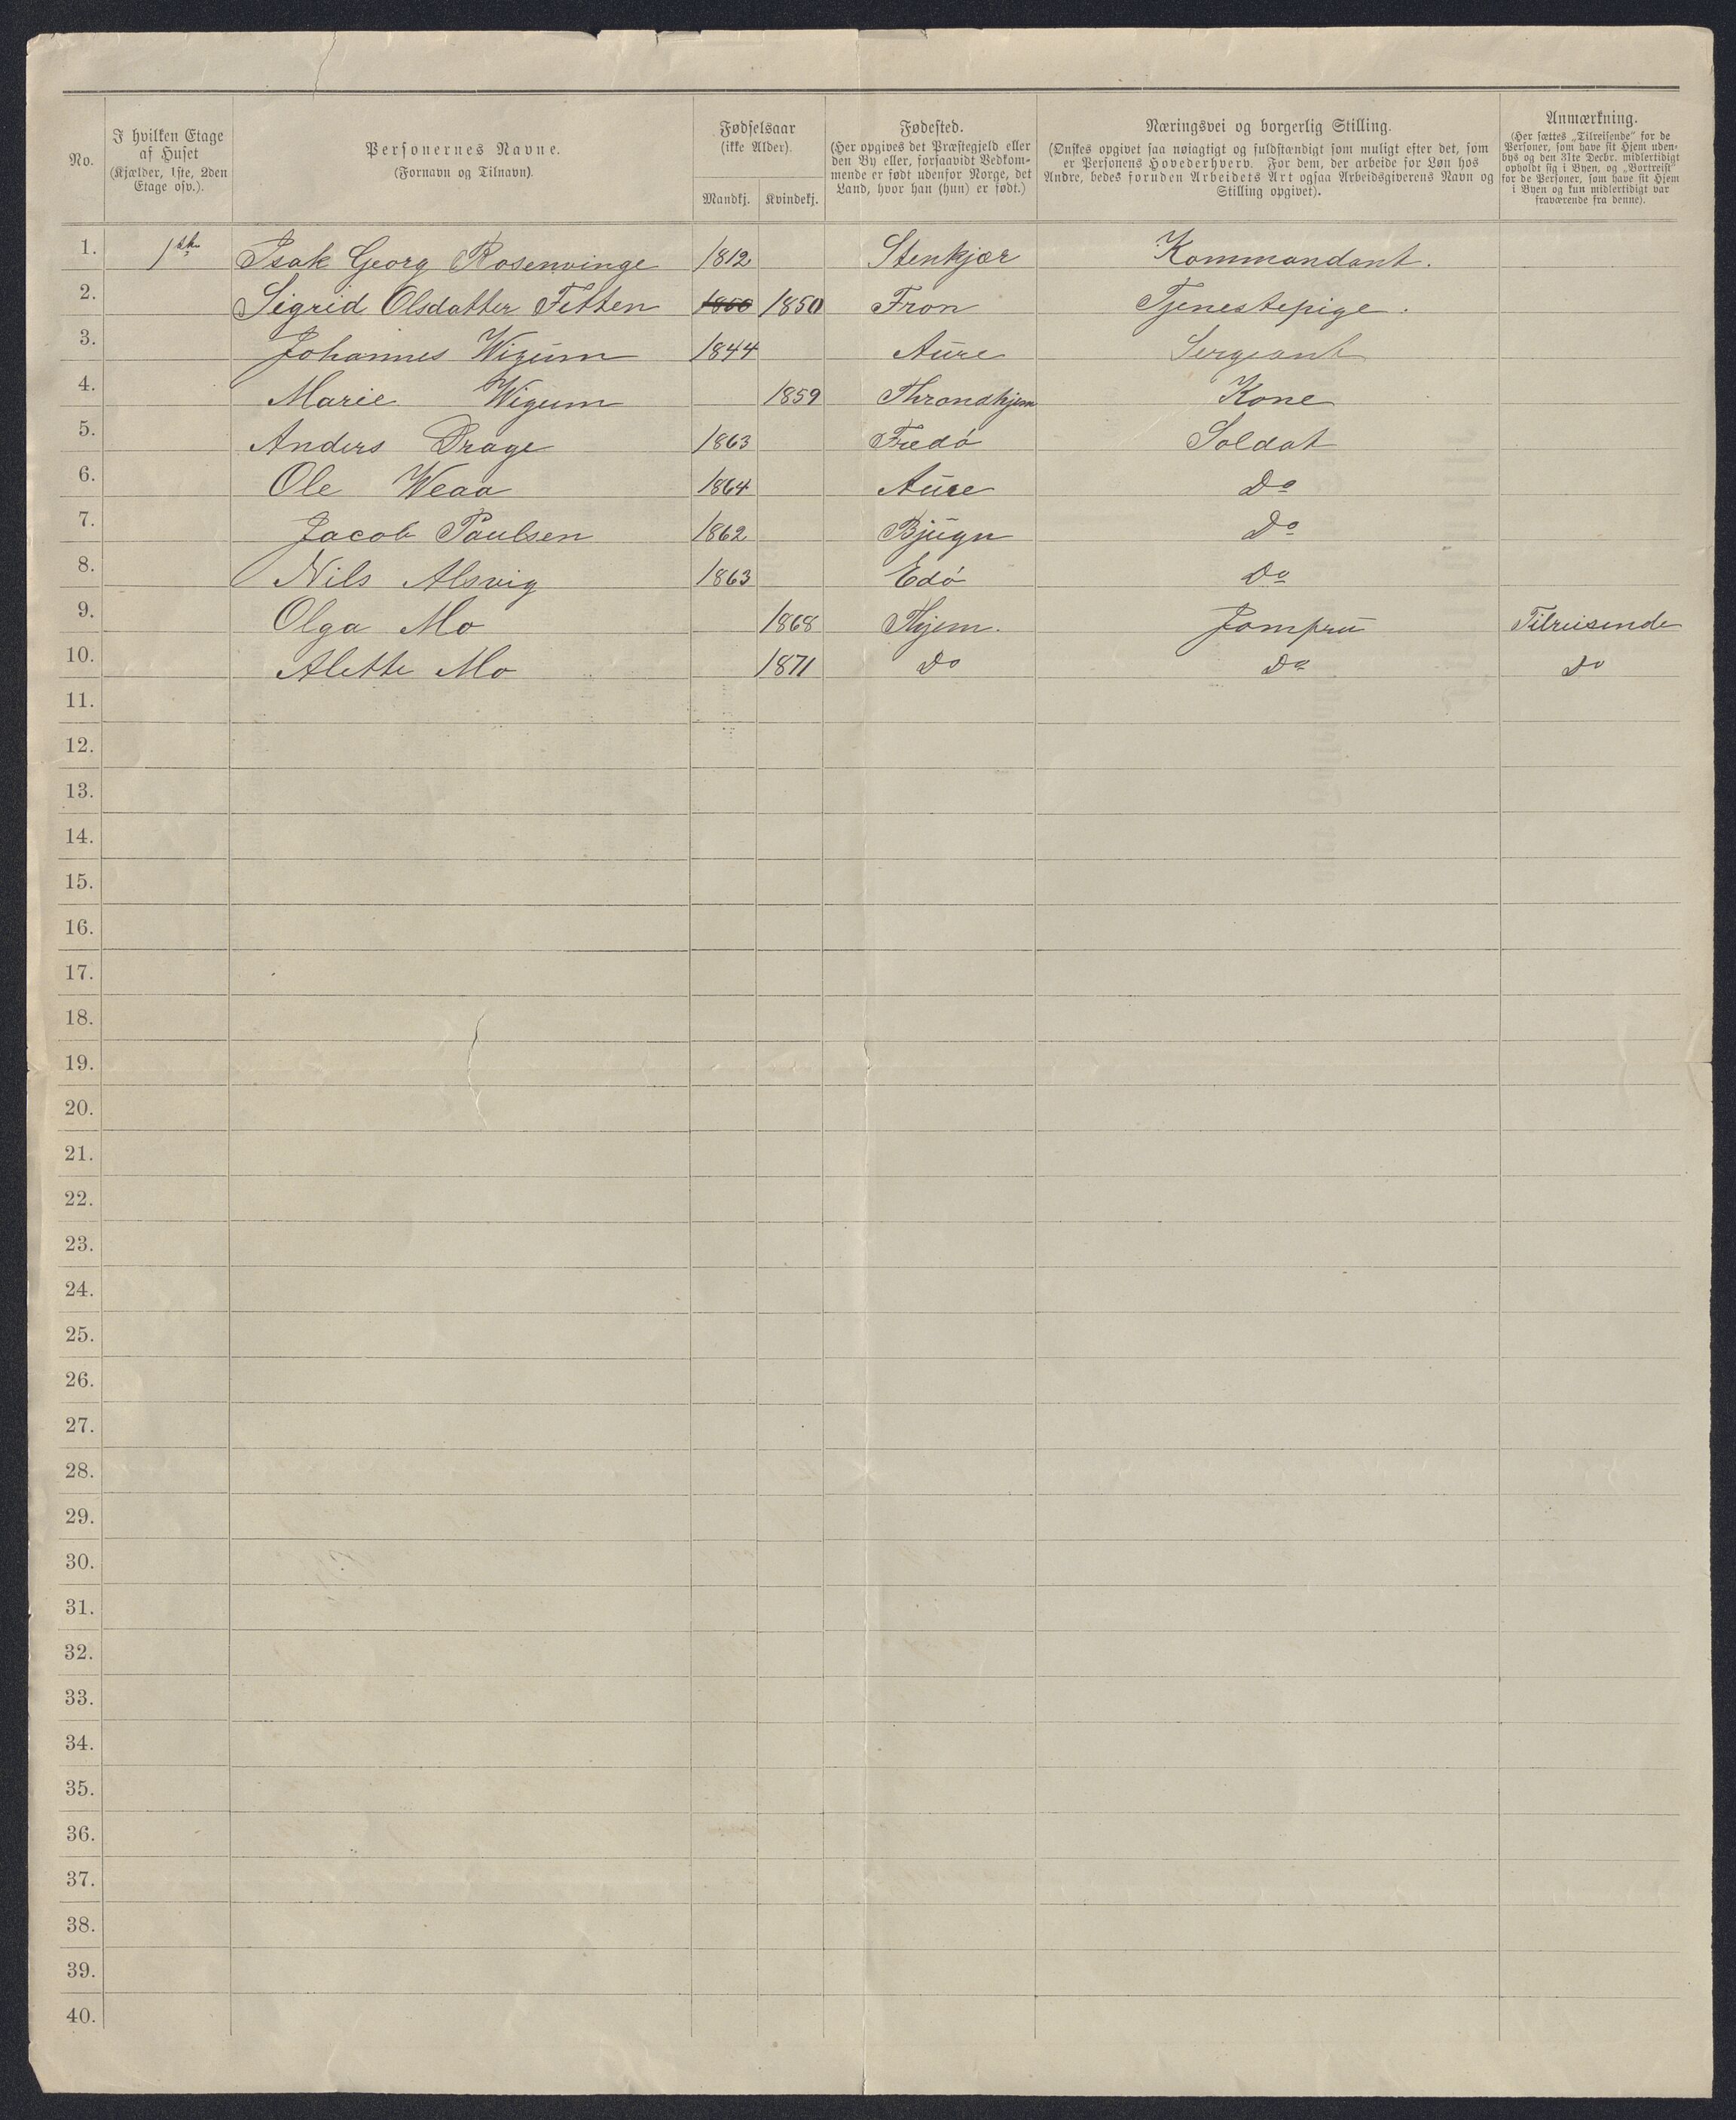 No.
I hvilken Etage
af Huset
(Kjælder, 1ste, 2den
Etage osv.).
Personernes Navne.
(Fornavn og Tilnavn).
Fødselsaar
(ikke Alder).
Mandkj. Kvindekj.
Fødested.
(Her opgives det Præstegjeld eller
den By eller, forsaavidt Vedkom-
mende er født udenfor Norge, det
Land, hvor han (hun) er født.)
Næringsvei og borgerlig Stilling.
(Ønskes opgivet saa nøiagtigt og fuldstændigt som muligt efter det, som
er Personens Hovederhverv. For dem, der arbeide for Løn hos
Andre, bedes foruden Arbeidets Art ogsaa Arbeidsgiverens Navn og
Stilling opgivet).
Anmærkning.
(Her sættes „Tilreisende" for de
Personer, som have sit Hjem uden-
bys og den 31te Decbr. midlertidigt
opholdt sig i Byen, og „Bortreist"
for de Personer, som have sit Hjem
i Byen og kun midlertidigt var
fraværende fra denne).
1. 1ste Isak Georg Rosenvinge 1812 Stenkjær Kommandant.
2. Sigrid Olsdatter Fetten 1850 1850 Fron Tjenestepige.
3. Johannes Wigum 1844 Aure Sergeant
4. Marie Wigum 1859 Throndhjem Kone
5. Anders Drage 1863 Fredø Soldat
6. Ole Weaa 1864 Aure Do
7. Jacob Paulsen 1862 Bjugn Do
8. Nils Alsvig 1863 Edø Do
9. Olga Mo 1868 Thjem. Jomfru Tilreisende
10. Alette Mo 1871 Do Do Do
11.
12.
13.
14.
15.
16.
17.
18.
19.
20.
21.
22.
23.
24.
25.
26.
27.
28.
29.
30.
31.
32.
33.
34.
35.
36.
37.
38.
39.
40.